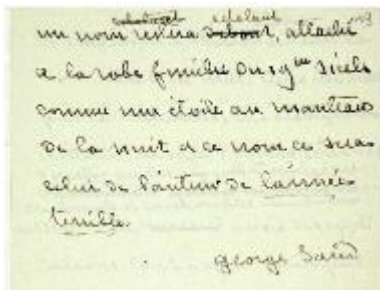 éclatant
un nom restera debout, attaché
à la robe funèbre du 19me siècle
comme une étoile au manteau
de la nuit et ce nom ce sera
celui de l'auteur de l'année
terrible.
George Sand